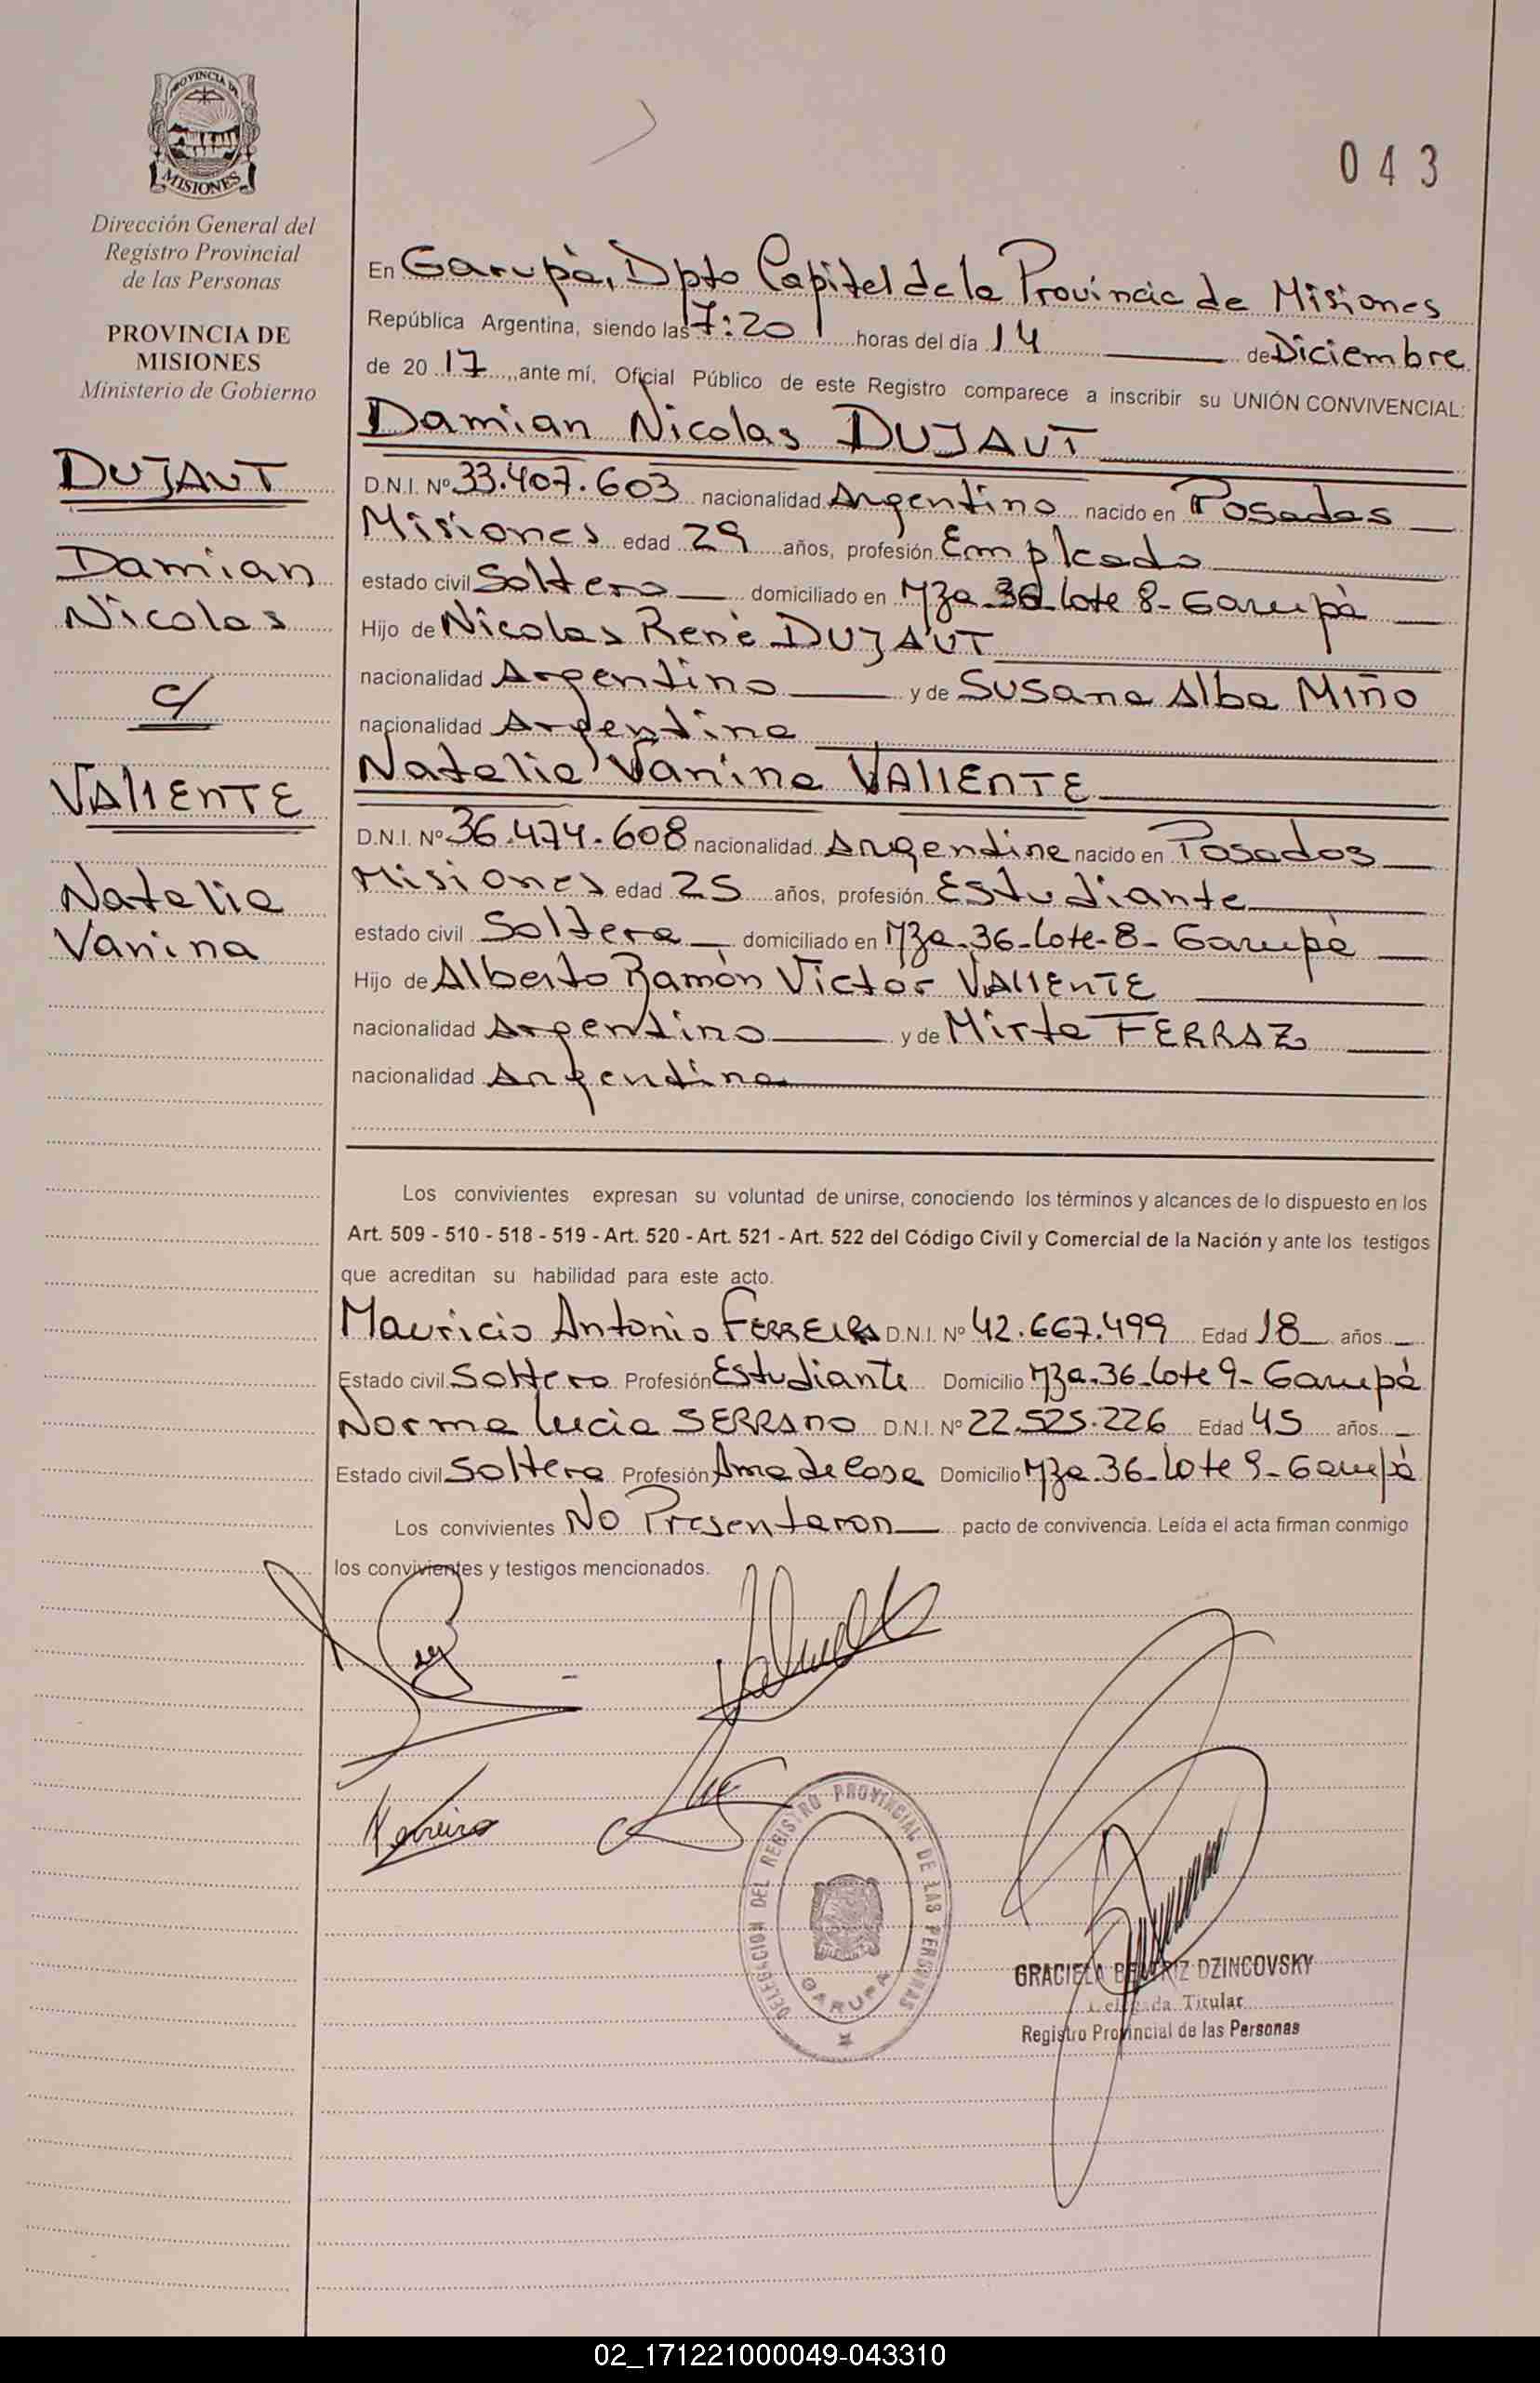 PROVINCIA DE
MISIONES
Dirección General del
Registro Provincial
de las Personas
PROVINCIA DE
MISIONES
Ministerio de Gobierno
DUJAUT
Damian
Nicolas
c/
VALIENTE
Natalia
Vanina
043
En Garupà, Dpto Capital de la Provincia de Misiones
República Argentina, siendo las 7:20 horas del día 14 de Diciembre
de 2017, ante mí, Oficial Público de este Registro comparece a inscribir su UNIÓN CONVIVENCIAL:
Damian Nicolas DUJAUT
D.N.I. Nº 33.407.603 nacionalidad Argentino nacido en Posadas
Misiones edad 29 años, profesión Empleado
estado civil Soltero domiciliado en Mza 36 Lote 8- Garupà
Hijo de Nicolas Renè DUJAUT
nacionalidad Argentino y de Susana Alba MIÑO
nacionalidad Argentina
Natalia Vanina VALIENTE
D.N.I. Nº 36.474.608 nacionalidad Argentina nacido en Posadas
Misiones edad 25 años, profesión Estudiante
estado civil Soltera domiciliado en Mza-36-Lote-8- Garupà
Hijo de Alberto Ramón Victor VALIENTE
nacionalidad Argentino y de Mirta FERRAZ
nacionalidad Argentina
Los convivientes expresan su voluntad de unirse, conociendo los términos y alcances de lo dispuesto en los
Art. 509 - 510 - 518 - 519 - Art. 520 - Art. 521 - Art. 522 del Código Civil y Comercial de la Nación y ante los testigos
que acreditan su habilidad para este acto.
Mauricio Antonio FERREIRA D.N.I. Nº 42.667.499 Edad 18 años
Estado civil Soltero Profesión Estudiante Domicilio Mza-36-Lote 9- Garupà
Norma Lucia SERRANO D.N.I. Nº 22.525.226 Edad 45 años
Estado civil Soltera Profesión Ama de Casa Domicilio Mza-36-Lote 9- Garupà
Los convivientes No Presentaron pacto de convivencia. Leída el acta firman conmigo
los convivientes y testigos mencionados.
Ferreira
DELEGACION DEL REGISTRO PROVINCIAL DE LAS PERSONAS
GARUPA
GRACIELA BEATRIZ DZINCOVSKY
Delegada Titular
Registro Provincial de las Personas
02_171221000049-043310